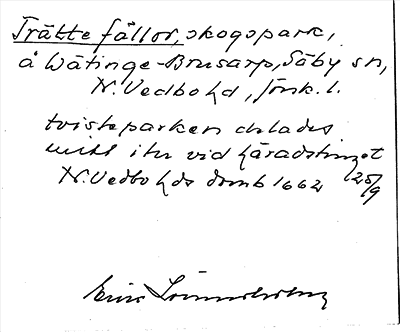 Trätte fållor, skogspark,
å Wätinge-Brusarp, Säby sn,
N. Vedbo hd, Jönk. l.
tvisteparken delades
mitt itu vid häradstinget
N. Vedbo hds domb 1662 25/9
Eric